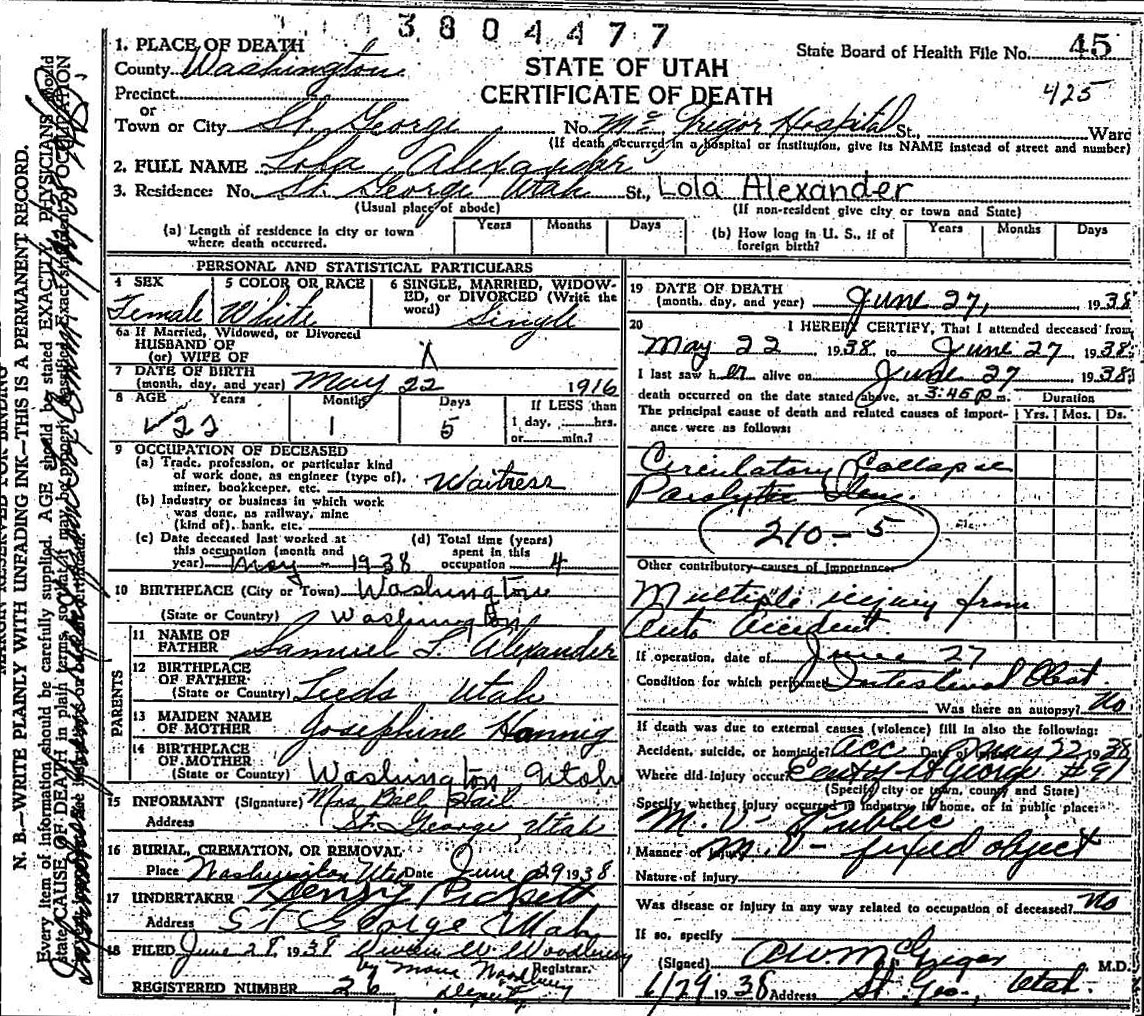 3804477
1. PLACE OF DEATH
County Washington
Precinct
or
Town or City St. George
STATE OF UTAH
CERTIFICATE OF DEATH
State Board of Health File No. 45
425
No. Mc Gregor Hospital St., Ward
(If death occurred in a hospital or institution, give its NAME instead of street and number)
2. FULL NAME Lola Alexander
3. Residence: No. St. George Utah St., Lola Alexander
(Usual place of abode) (If non-resident give city or town and State)
(a) Length of residence in city or town where death occurred. Years Months Days
(b) How long in U. S., if of foreign birth? Years Months Days
PERSONAL AND STATISTICAL PARTICULARS
4 SEX Female
5 COLOR OR RACE White
6 SINGLE, MARRIED, WIDOWED, or DIVORCED (Write the word) Single
6a If Married, Widowed, or Divorced
HUSBAND OF
(or) WIFE OF
7 DATE OF BIRTH
(month, day, and year) May 22 1916
8 AGE Years 22 Months 1 Days 5
If LESS than
1 day, hrs.
or min.?
9 OCCUPATION OF DECEASED
(a) Trade, profession, or particular kind
of work done, as engineer (type of),
miner, bookkeeper, etc. Waitress
(b) Industry or business in which work
was done, as railway, mine
(kind of), bank, etc.
(c) Date deceased last worked at
this occupation (month and
year) May - 1938
(d) Total time (years)
spent in this
occupation 4
10 BIRTHPLACE (City or Town) Washington
(State or Country) Washington
PARENTS
11 NAME OF
FATHER Samuel L. Alexander
12 BIRTHPLACE
OF FATHER
(State or Country) Leeds Utah
13 MAIDEN NAME
OF MOTHER Josephine Hannig
14 BIRTHPLACE
OF MOTHER
(State or Country) Washington Utah
15 INFORMANT (Signature) Mrs Bill Hail
Address St. George Utah
16 BURIAL, CREMATION, OR REMOVAL
Place Washington Ut Date June 29 1938
17 UNDERTAKER Henry Pickett
Address St George Utah
18 FILED June 28 1938 W. Woodbury
Registrar.
by Woodbury
Deputy
REGISTERED NUMBER 26
19 DATE OF DEATH
(month, day, and year) June 27, 1938
20 I HEREBY CERTIFY, That I attended deceased from
May 22 1938 to June 27 1938
I last saw her alive on June 27 1938
death occurred on the date stated above, at 3:45 p.m.
Duration
Yrs. Mos. Ds.
The principal cause of death and related causes of importance were as follows:
Circulatory Collapse
Paralytic
210-5
Other contributory causes of importance.
Multiple injury from
Auto Accident.
If operation, date of June 27
Condition for which performed Intestinal Obst.
Was there an autopsy? No
If death was due to external causes (violence) fill in also the following:
Accident, suicide, or homicide? Acc Date of May 22 1938
Where did injury occur? St George #91
(Specify city or town, county and State)
Specify whether injury occurred in industry, in home, or in public place:
M. V - Public
Manner of injury M. V - fixed object
Nature of injury
Was disease or injury in any way related to occupation of deceased? No
If so, specify
(Signed) McGregor M.D.
6/29 1938 Address St. Geo., Utah.
MARGIN RESERVED FOR BINDING
N. B.—WRITE PLAINLY WITH UNFADING INK—THIS IS A PERMANENT RECORD.
Every item of information should be carefully supplied. AGE should be stated EXACTLY. PHYSICIANS should
state CAUSE OF DEATH in plain terms, so that it may be properly classified. Exact OCCUPATION